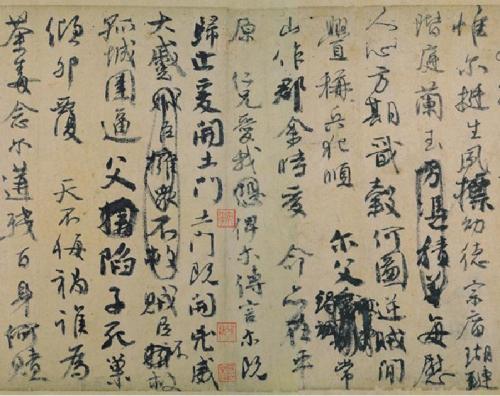 惟尔挺生夙標幼德宗廟瑚璉
階庭蘭玉方憑積善每慰
人心方期戩穀何圖逆賊間
釁稱兵犯順尔父竭誠常
山作郡余時受命亦在平
原仁兄愛我恐俾尔傳言尔既
歸止爰開土門土門既開兇威
大蹙賊臣擁衆不救賊臣不救
孤城圍逼父陷子死巢
傾卵覆天不悔禍誰為
荼毒念尔遘殘百身何贖